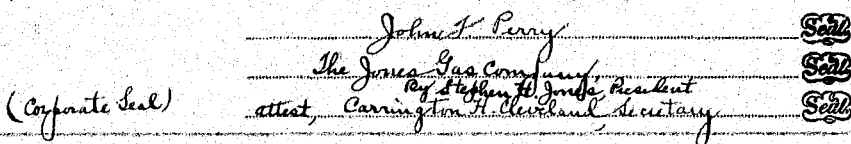 John F Perry Seal
The Jones Gas Company, Seal
By Stephen H Jones, President
(Corporate Seal) attest, Carrington H Cleveland, Secretary Seal